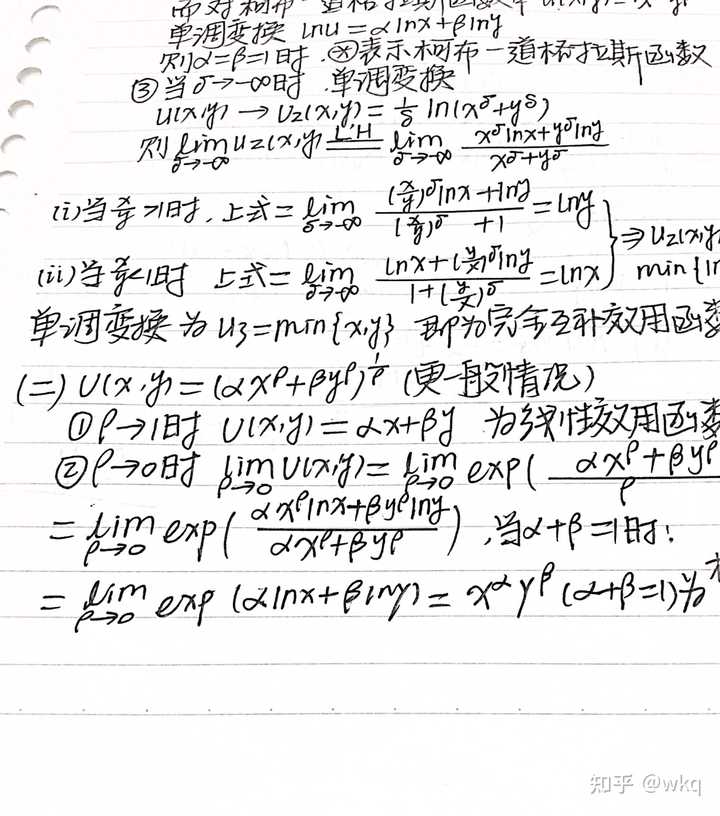 而对柯布一道格拉斯函数
单调变换 lnu = αlnx + βlny
则 α=β=1时. ⊗表示柯布一道格拉斯函数
③ 当δ→-∞时 单调变换
u(x,y) → u₂(x,y) = 1/δ ln(x^δ+y^δ)
则 lim_{δ→-∞} u₂(x,y) =(L'H)= lim_{δ→-∞} (x^δ lnx + y^δ lny)/(x^δ+y^δ)
(i) 当 x/y >1时, 上式 = lim_{δ→-∞} ((x/y)^δ lnx + lny)/((x/y)^δ + 1) = lny
⇒ u₂(x,y
(ii) 当 x/y <1时 上式 = lim_{δ→-∞} (lnx + (y/x)^δ lny)/(1 + (y/x)^δ) = lnx
min{ln
单调变换为 u₃ = min{x,y} 即为完全互补效用函数
(二) U(x,y) = (αx^ρ + βy^ρ)^{1/ρ} (更一般情况)
① ρ→1时 U(x,y) = αx + βy 为线性效用函数
② ρ→0时 lim_{ρ→0} U(x,y) = lim_{ρ→0} exp( (αx^ρ + βy^ρ)/ρ
= lim_{ρ→0} exp( (αx^ρ lnx + βy^ρ lny)/(αx^ρ + βy^ρ) ) , 当α+β=1时:
= lim_{ρ→0} exp (αlnx + βlny) = x^α y^β (α+β=1) 为
知乎 @wkq